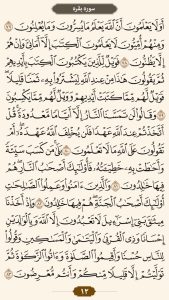 سورة بقره
أَوَلَا يَعْلَمُونَ أَنَّ ٱللَّهَ يَعْلَمُ مَا يُسِرُّونَ وَمَا يُعْلِنُونَ ٧٧
وَمِنْهُمْ أُمِّيُّونَ لَا يَعْلَمُونَ ٱلْكِتَٰبَ إِلَّآ أَمَانِىَّ وَإِنْ هُمْ
إِلَّا يَظُنُّونَ ٧٨ فَوَيْلٌ لِّلَّذِينَ يَكْتُبُونَ ٱلْكِتَٰبَ بِأَيْدِيهِمْ
ثُمَّ يَقُولُونَ هَٰذَا مِنْ عِندِ ٱللَّهِ لِيَشْتَرُوا۟ بِهِۦ ثَمَنًا قَلِيلًا
فَوَيْلٌ لَّهُم مِّمَّا كَتَبَتْ أَيْدِيهِمْ وَوَيْلٌ لَّهُم مِّمَّا يَكْسِبُونَ
٧٩ وَقَالُوا۟ لَن تَمَسَّنَا ٱلنَّارُ إِلَّآ أَيَّامًا مَّعْدُودَةً قُلْ
أَتَّخَذْتُمْ عِندَ ٱللَّهِ عَهْدًا فَلَن يُخْلِفَ ٱللَّهُ عَهْدَهُۥٓ أَمْ
تَقُولُونَ عَلَى ٱللَّهِ مَا لَا تَعْلَمُونَ ٨٠ بَلَىٰ مَن كَسَبَ سَيِّئَةً
وَأَحَٰطَتْ بِهِۦ خَطِيٓـَٔتُهُۥ فَأُو۟لَٰٓئِكَ أَصْحَٰبُ ٱلنَّارِ هُمْ
فِيهَا خَٰلِدُونَ ٨١ وَٱلَّذِينَ ءَامَنُوا۟ وَعَمِلُوا۟ ٱلصَّٰلِحَٰتِ
أُو۟لَٰٓئِكَ أَصْحَٰبُ ٱلْجَنَّةِ هُمْ فِيهَا خَٰلِدُونَ ٨٢ وَإِذْ أَخَذْنَا
مِيثَٰقَ بَنِىٓ إِسْرَٰٓءِيلَ لَا تَعْبُدُونَ إِلَّا ٱللَّهَ وَبِٱلْوَٰلِدَيْنِ
إِحْسَانًا وَذِى ٱلْقُرْبَىٰ وَٱلْيَتَٰمَىٰ وَٱلْمَسَٰكِينِ وَقُولُوا۟
لِلنَّاسِ حُسْنًا وَأَقِيمُوا۟ ٱلصَّلَوٰةَ وَءَاتُوا۟ ٱلزَّكَوٰةَ ثُمَّ
تَوَلَّيْتُمْ إِلَّا قَلِيلًا مِّنكُمْ وَأَنتُم مُّعْرِضُونَ ٨٣
١٢